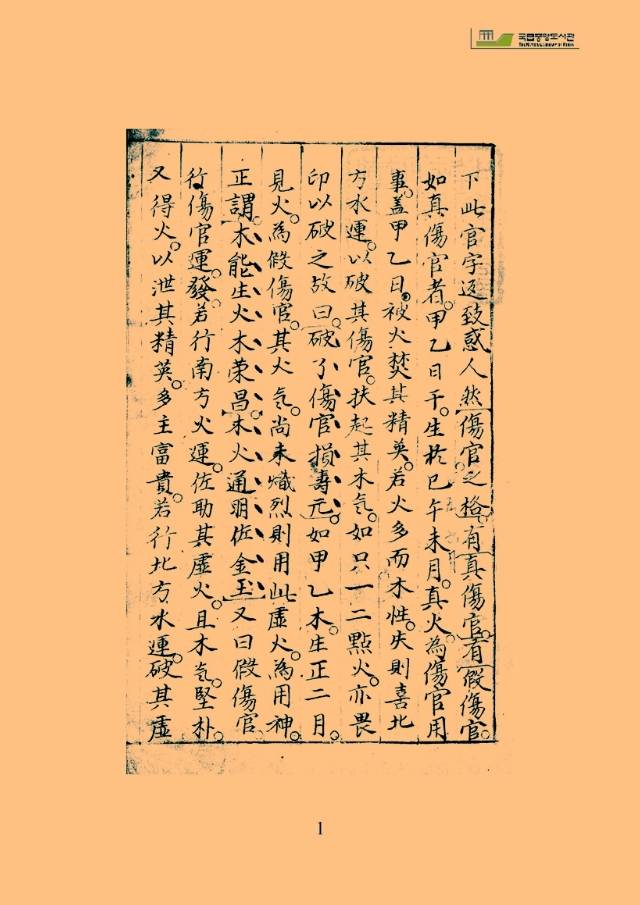 국립중앙도서관
THE NATIONAL LIBRARY OF KOREA
下此官字返致惑人然傷官之格有真傷官有假傷官
如真傷官者甲乙日干生於巳午未月真火為傷官用
事蓋甲乙日被火焚其精英若火多而木性失則喜北
方水運以破其傷官扶起其木氣如只一二點火亦畏
印以破之故曰破了傷官損壽元如甲乙木生正二月
見火為假傷官其火氣尚未熾烈則用此虛火為用神
正謂木能生火木荣昌木火通明佐金玉又曰假傷官
行傷官運發若行南方火運佐助其虛火且木氣堅朴
又得火以泄其精英多主富貴若行北方水運破其虛
1